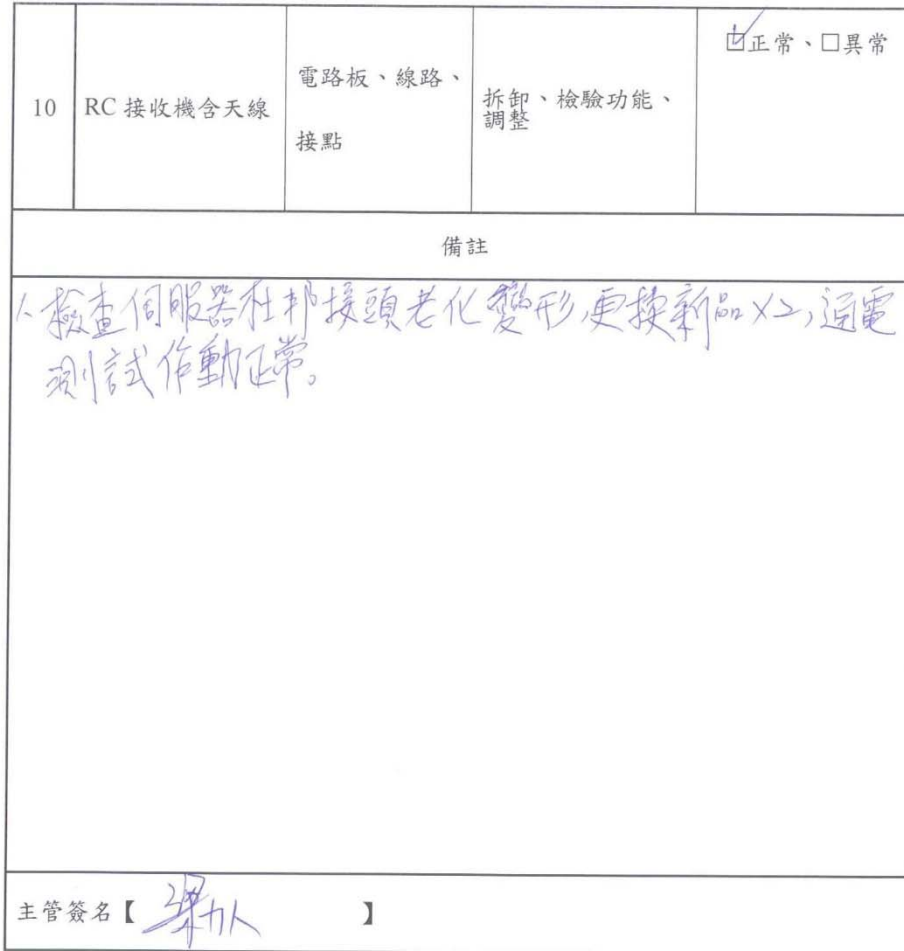 10 RC 接收機含天線 電路板、線路、 拆卸、檢驗功能、 ☑正常、□異常
接點 調整
備註
1、檢查伺服器杜邦接頭老化變形,更換新品X2,通電
測試作動正常。
主管簽名【 】